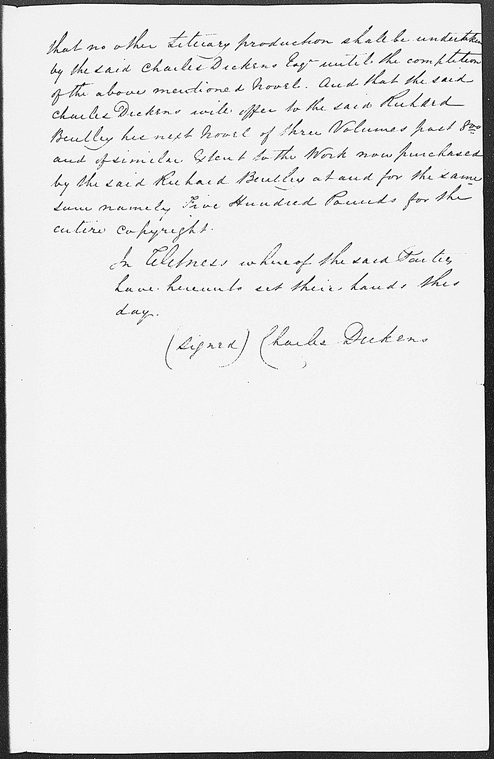 that no other Literary production shall be undertaken
by the said Charles Dickens Esqr until the completion
of the above mentioned Novel. And that the said
Charles Dickens will offer to the said Richard
Bentley his next Novel of three Volumes post 8vo
and of similar Extent to the Work now purchased
by the said Richard Bentley at and for the same
sum namely Five Hundred Pounds for the
entire copyright.
In Witness whereof the said Parties
have hereunto set their hands this
day.
(signed) Charles Dickens